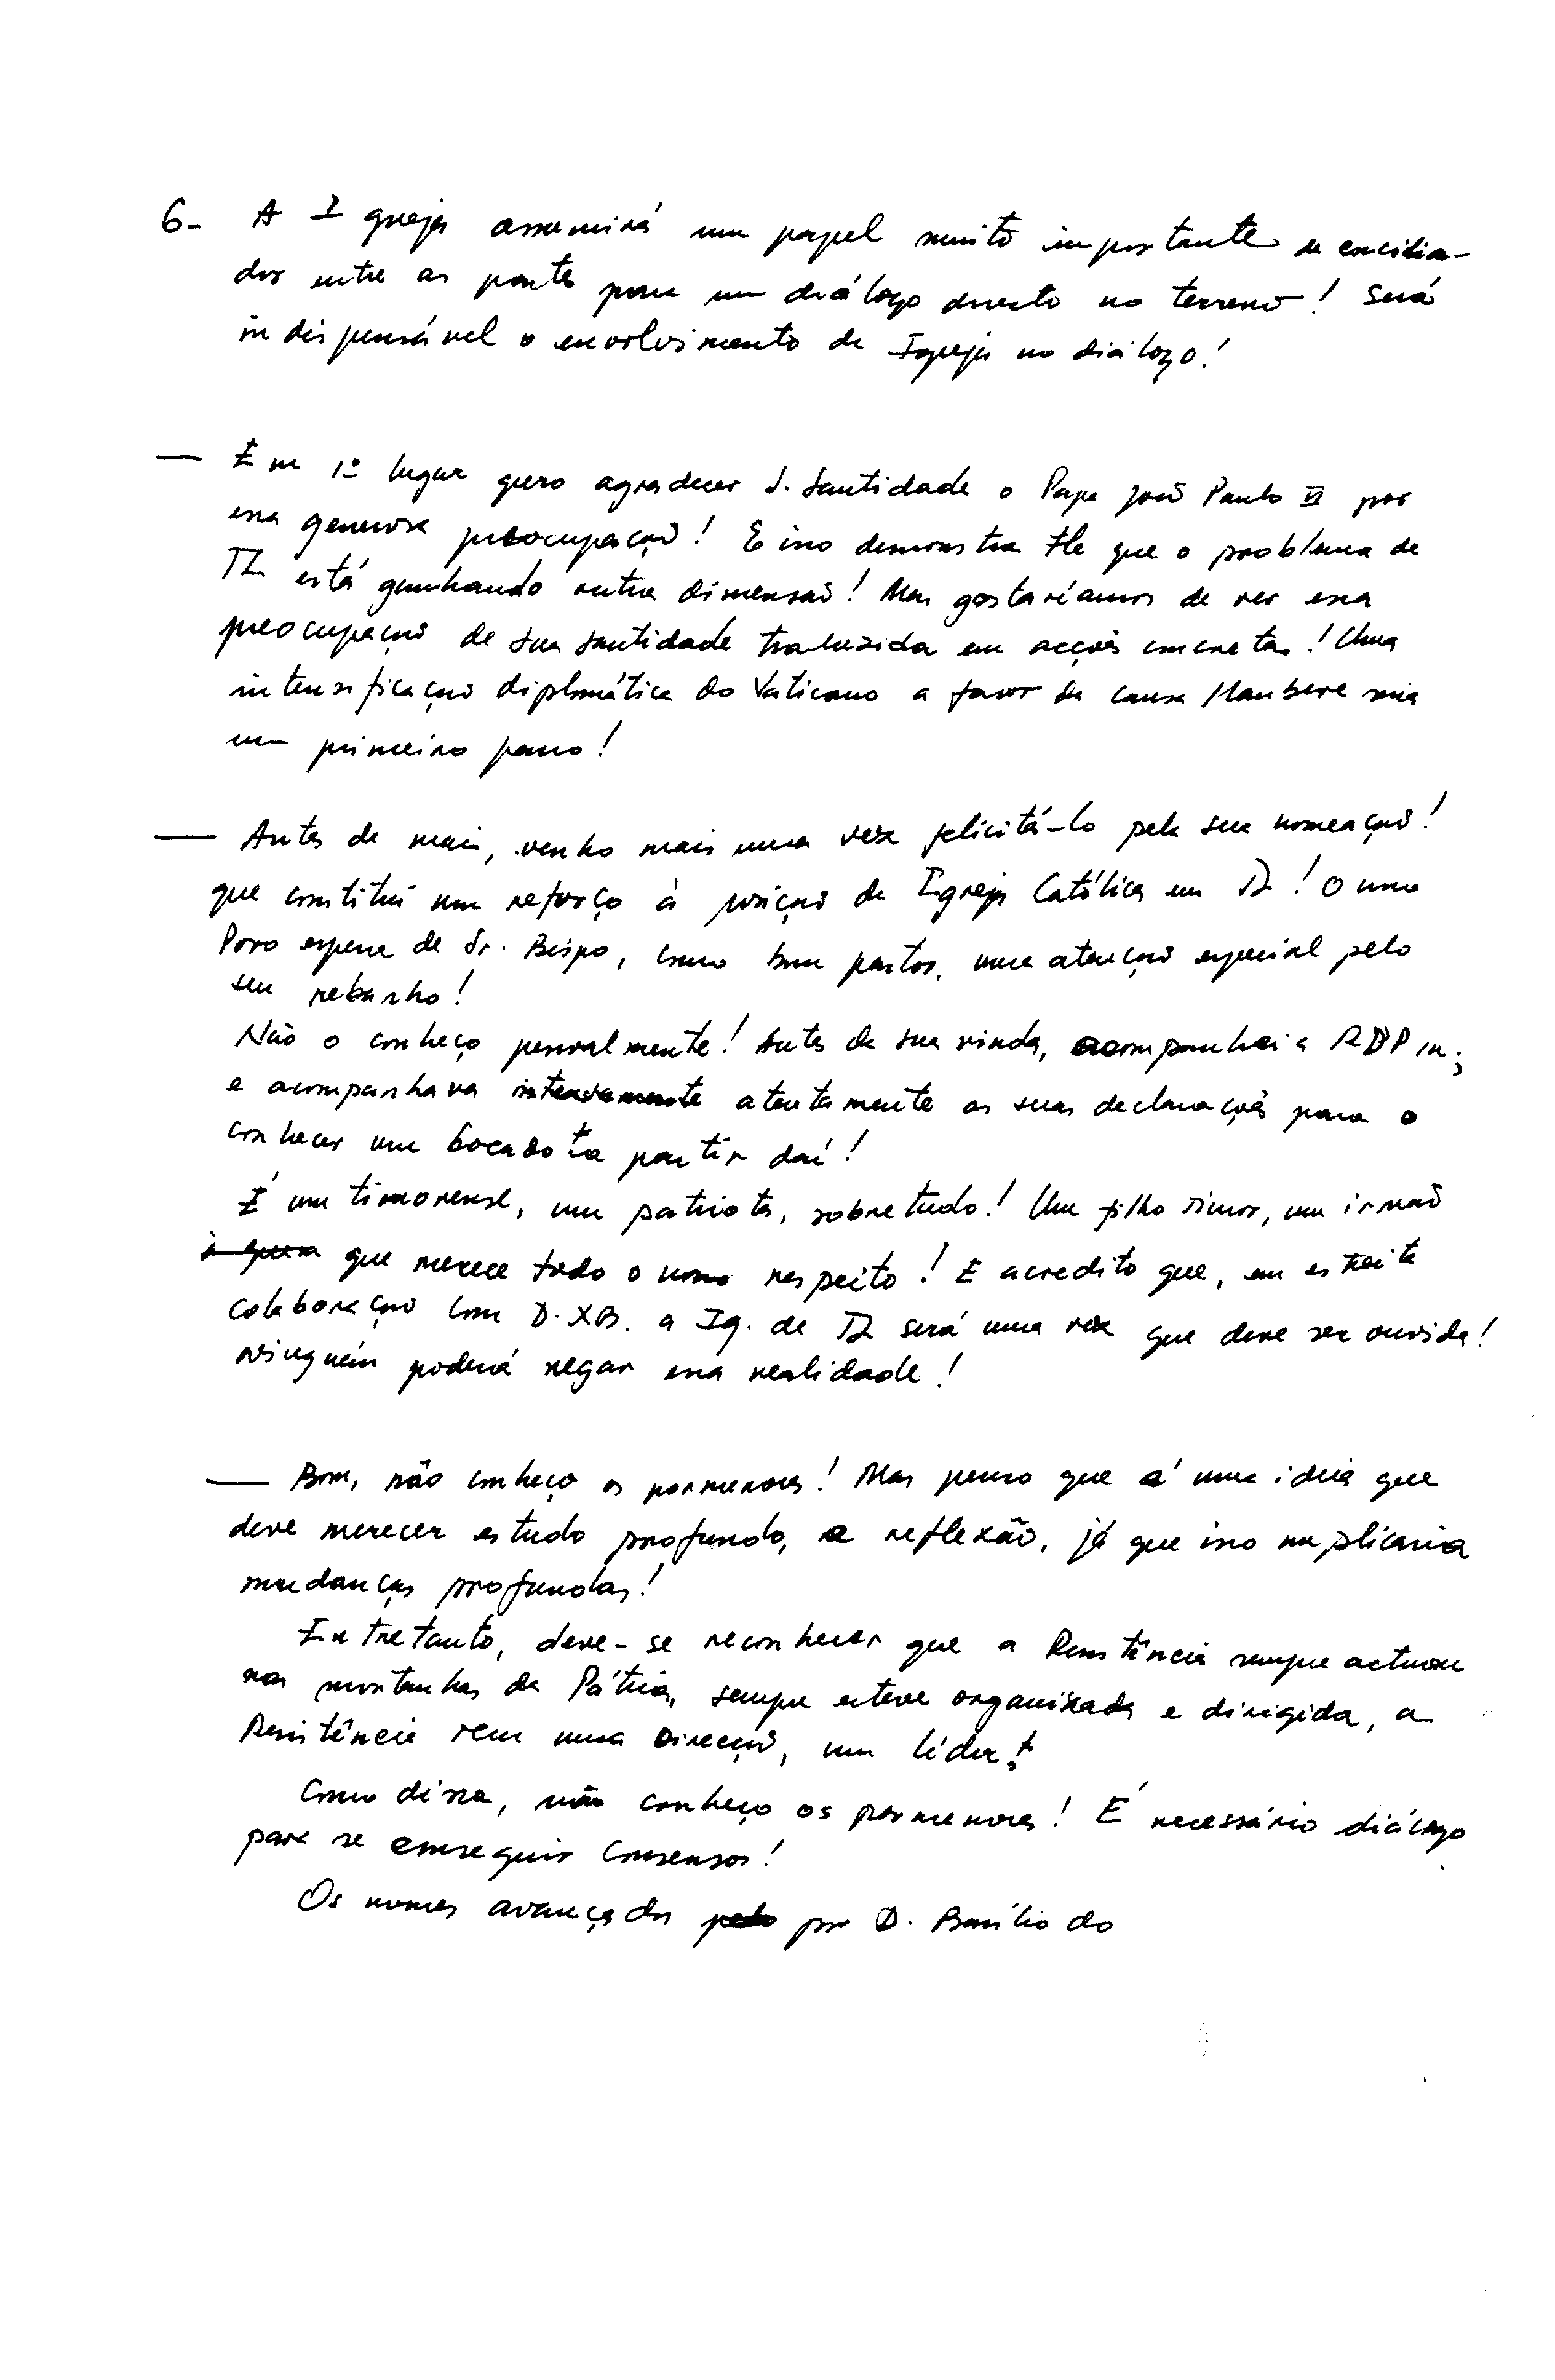 6- A Igreja assumirá um papel muito importante de concilia-
dor entre as partes para um diálogo directo no terreno! Será
indispensável o envolvimento da Igreja no diálogo!
— Em 1º lugar quero agradecer S. Santidade o Papa João Paulo II por
essa generosa preocupação! E isso demonstra que o problema de
TL está ganhando outra dimensão! Mas gostaríamos de ver essa
preocupação de Sua Santidade traduzida em acções concretas! Uma
intensificação diplomática do Vaticano a favor da causa Maubere seria
um primeiro passo!
— Antes de mais, venho mais uma vez felicitá-lo pela sua nomeação!
que constitui um reforço à posição da Igreja Católica em TL! O nosso
Povo espera do Sr. Bispo, como bom pastor, uma atenção especial pelo
seu rebanho!
Não o conheço pessoalmente! Antes da sua vinda, acompanhei a RDP in;
e acompanhava intensamente atentamente as suas declarações para o
conhecer um bocado a partir daí!
É um timorense, um patriota, sobretudo! Um filho Timor, um irmão
à quem que merece todo o nosso respeito! E acredito que, em estreita
colaboração com D. XB. a Ig. de TL será uma voz que deve ser ouvida!
ninguém poderá negar essa realidade!
— Bom, não conheço os pormenores! Mas penso que é uma ideia que
deve merecer estudo profundo, e reflexão, já que isso implicaria
mudanças profundas!
Entretanto, deve-se reconhecer que a Resistência sempre actuou
nas montanhas da Pátria, sempre esteve organizada e dirigida, a
Resistência tem uma Direcção, um líder!
Como disse, não conheço os pormenores! É necessário diálogo
para se conseguir Consensos!
Os nomes avançados pelo por D. Basílio do